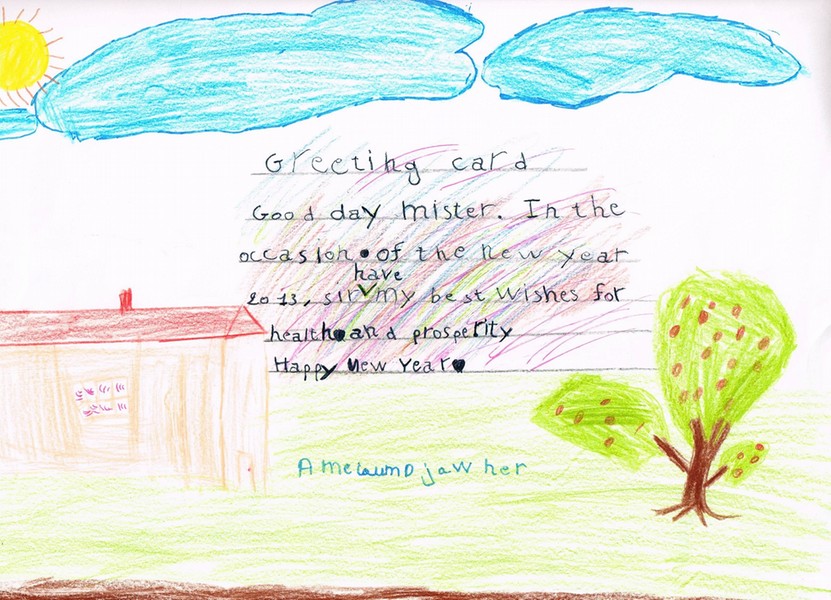 Greeting card
Good day mister. In the
occasion of the New year
have
2013, sir my best wishes for
health and prosperity
Happy New Year